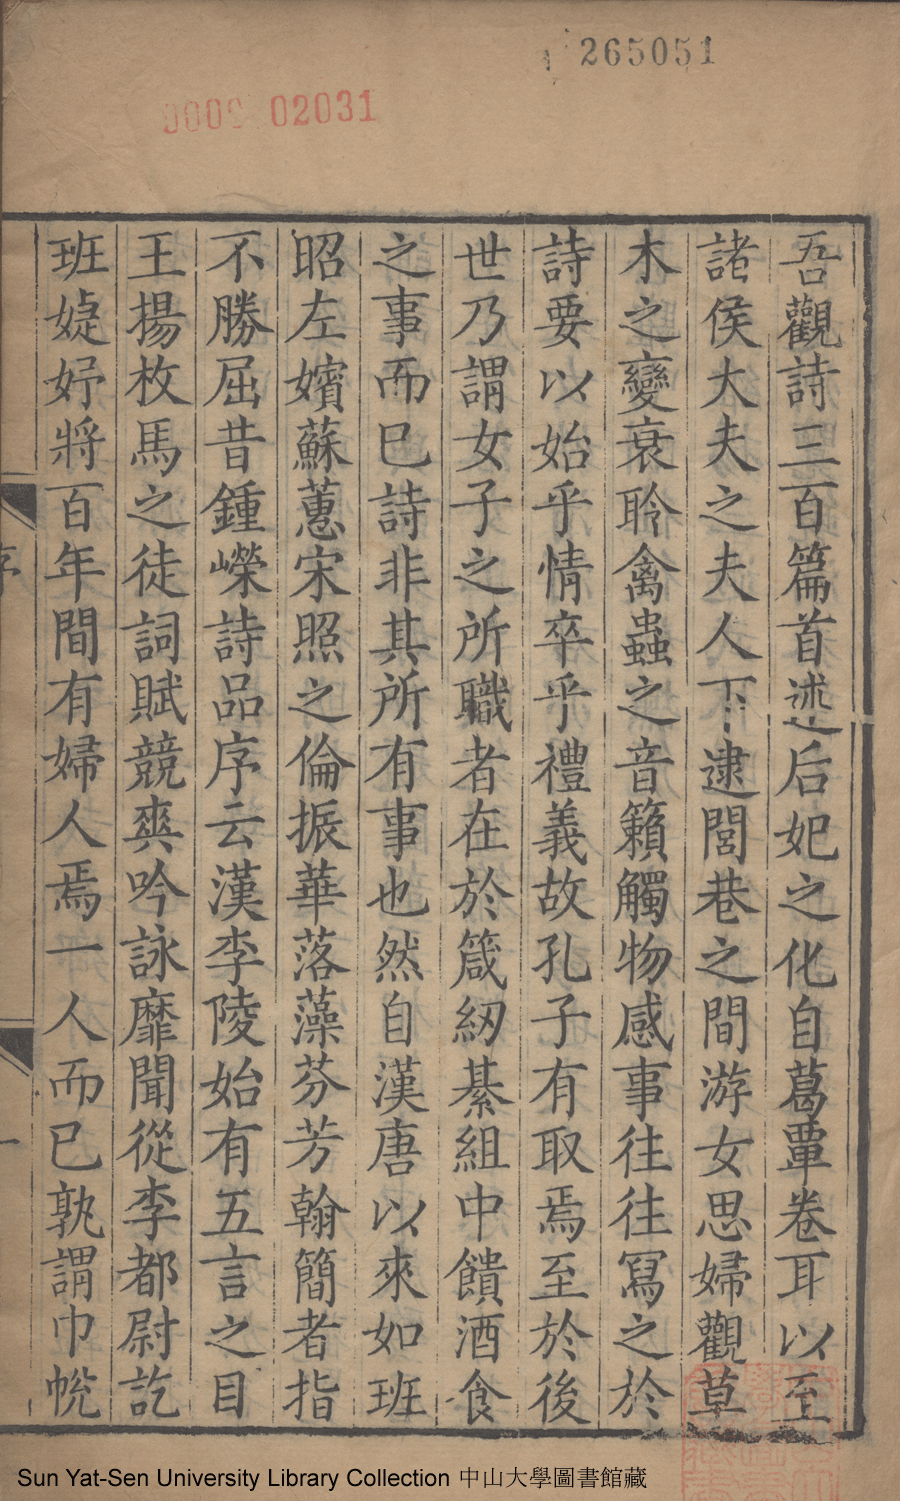 265051
02031
吾觀詩三百篇首述后妃之化自葛覃卷耳以至
諸侯大夫之夫人下逮閭巷之間游女思婦觀草
木之變衰聆禽蟲之音籟觸物感事往往冩之於
詩要以始乎情卒乎禮義故孔子有取焉至於後
世乃謂女子之所職者在於箴紉綦組中饋酒食
之事而已詩非其所有事也然自漢唐以來如班
昭左嬪蘇蕙宋照之倫振華落藻芬芳翰簡者指
不勝屈昔鍾嶸詩品序云漢李陵始有五言之目
王揚枚馬之徒詞賦競爽吟詠靡聞從李都尉訖
班婕妤將百年間有婦人焉一人而已孰謂巾帨
序
一
Sun Yat-Sen University Library Collection 中山大學圖書館藏